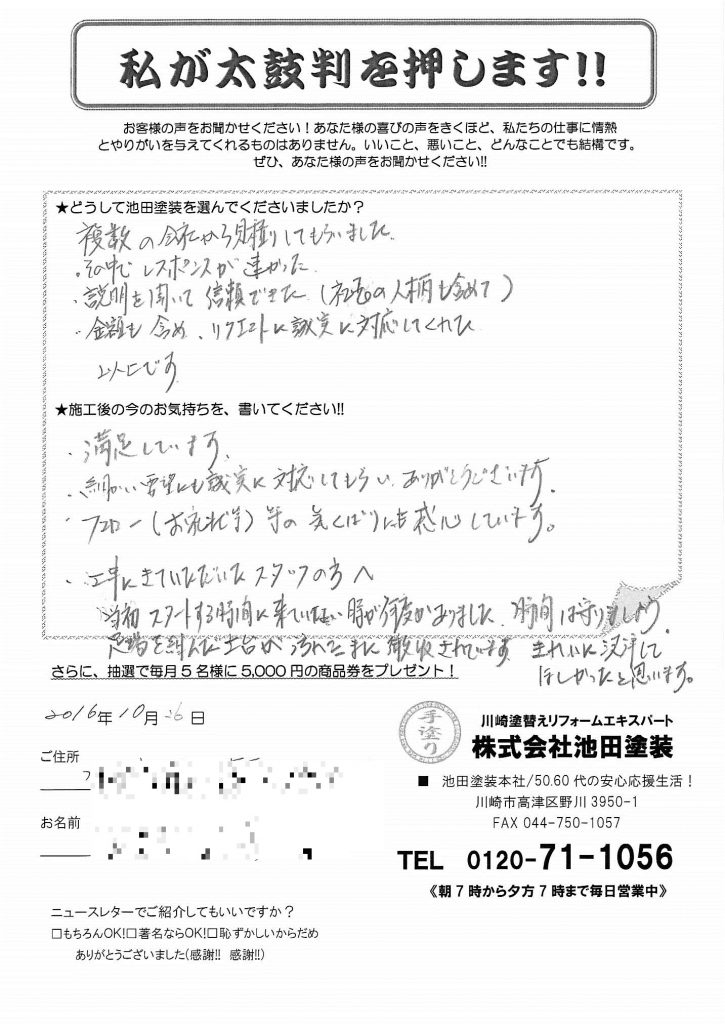 私が太鼓判を押します!!
お客様の声をお聞かせください！あなた様の喜びの声をきくほど、私たちの仕事に情熱
とやりがいを与えてくれるものはありません。いいこと、悪いこと、どんなことでも結構です。
ぜひ、あなた様の声をお聞かせください!!
★どうして池田塗装を選んでくださいましたか？
複数の会社から見積りしてもらいました
・その中でレスポンスが速かった
・説明を聞いて信頼できた(社長の人柄も含めて)
・金額も含め、リクエストに誠実に対応してくれた
以上です
★施工後の今のお気持ちを、書いてください!!
・満足しています。
・細かい要望にも誠実に対応してもらい、ありがとうございます。
・フォロー(お礼状等)等の気くばりにも感心しています。
・工事にきていただいたスタッフの方へ
当初スタートする時間に来ていない時が何度かありました。時間は守りましょう
足場を組んだ土台が汚れたままに撤収されています。きれいに洗浄して
ほしかったと思います。
さらに、抽選で毎月5名様に5,000円の商品券をプレゼント！
2016年10月26日
手塗り
川崎塗替えリフォームエキスパート
株式会社池田塗装
ご住所
■ 池田塗装本社/50.60代の安心応援生活！
川崎市高津区野川3950-1
お名前
FAX 044-750-1057
TEL 0120-71-1056
《朝7時から夕方7時まで毎日営業中》
ニュースレターでご紹介してもいいですか？
□もちろんOK!□著名ならOK!□恥ずかしいからだめ
ありがとうございました(感謝!! 感謝!!)